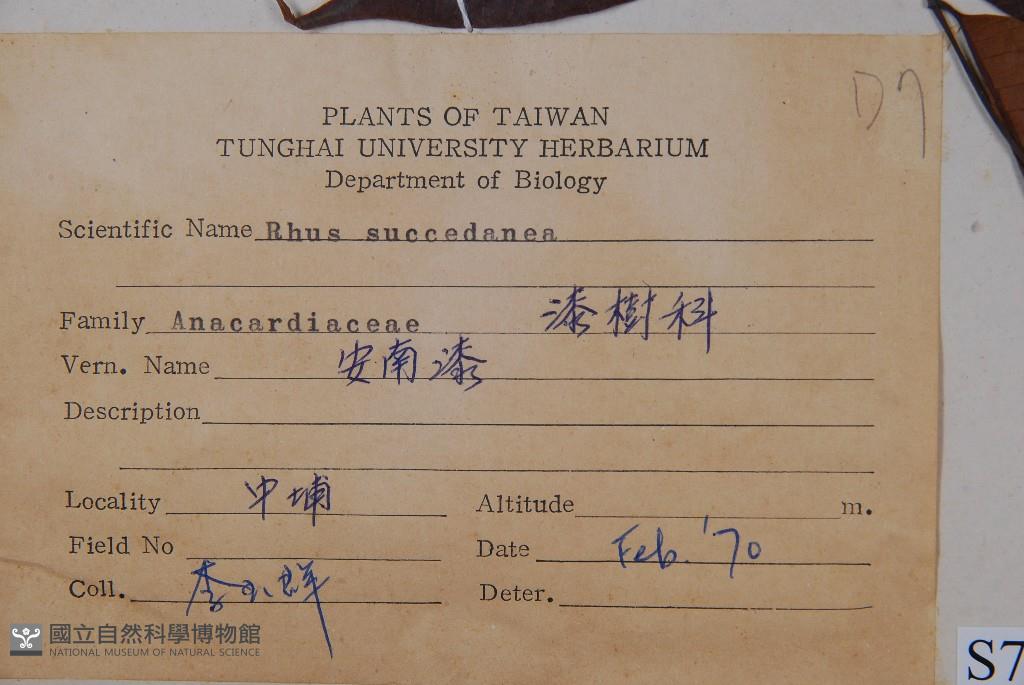 D7
PLANTS OF TAIWAN
TUNGHAI UNIVERSITY HERBARIUM
Department of Biology
Scientific Name Rhus succedanea
Family Anacardiaceae 漆樹科
Vern. Name 安南漆
Description
Locality 中埔
Altitude m.
Field No
Date Feb. '70
Coll. 李
Deter.
國立自然科學博物館
NATIONAL MUSEUM OF NATURAL SCIENCE
S7